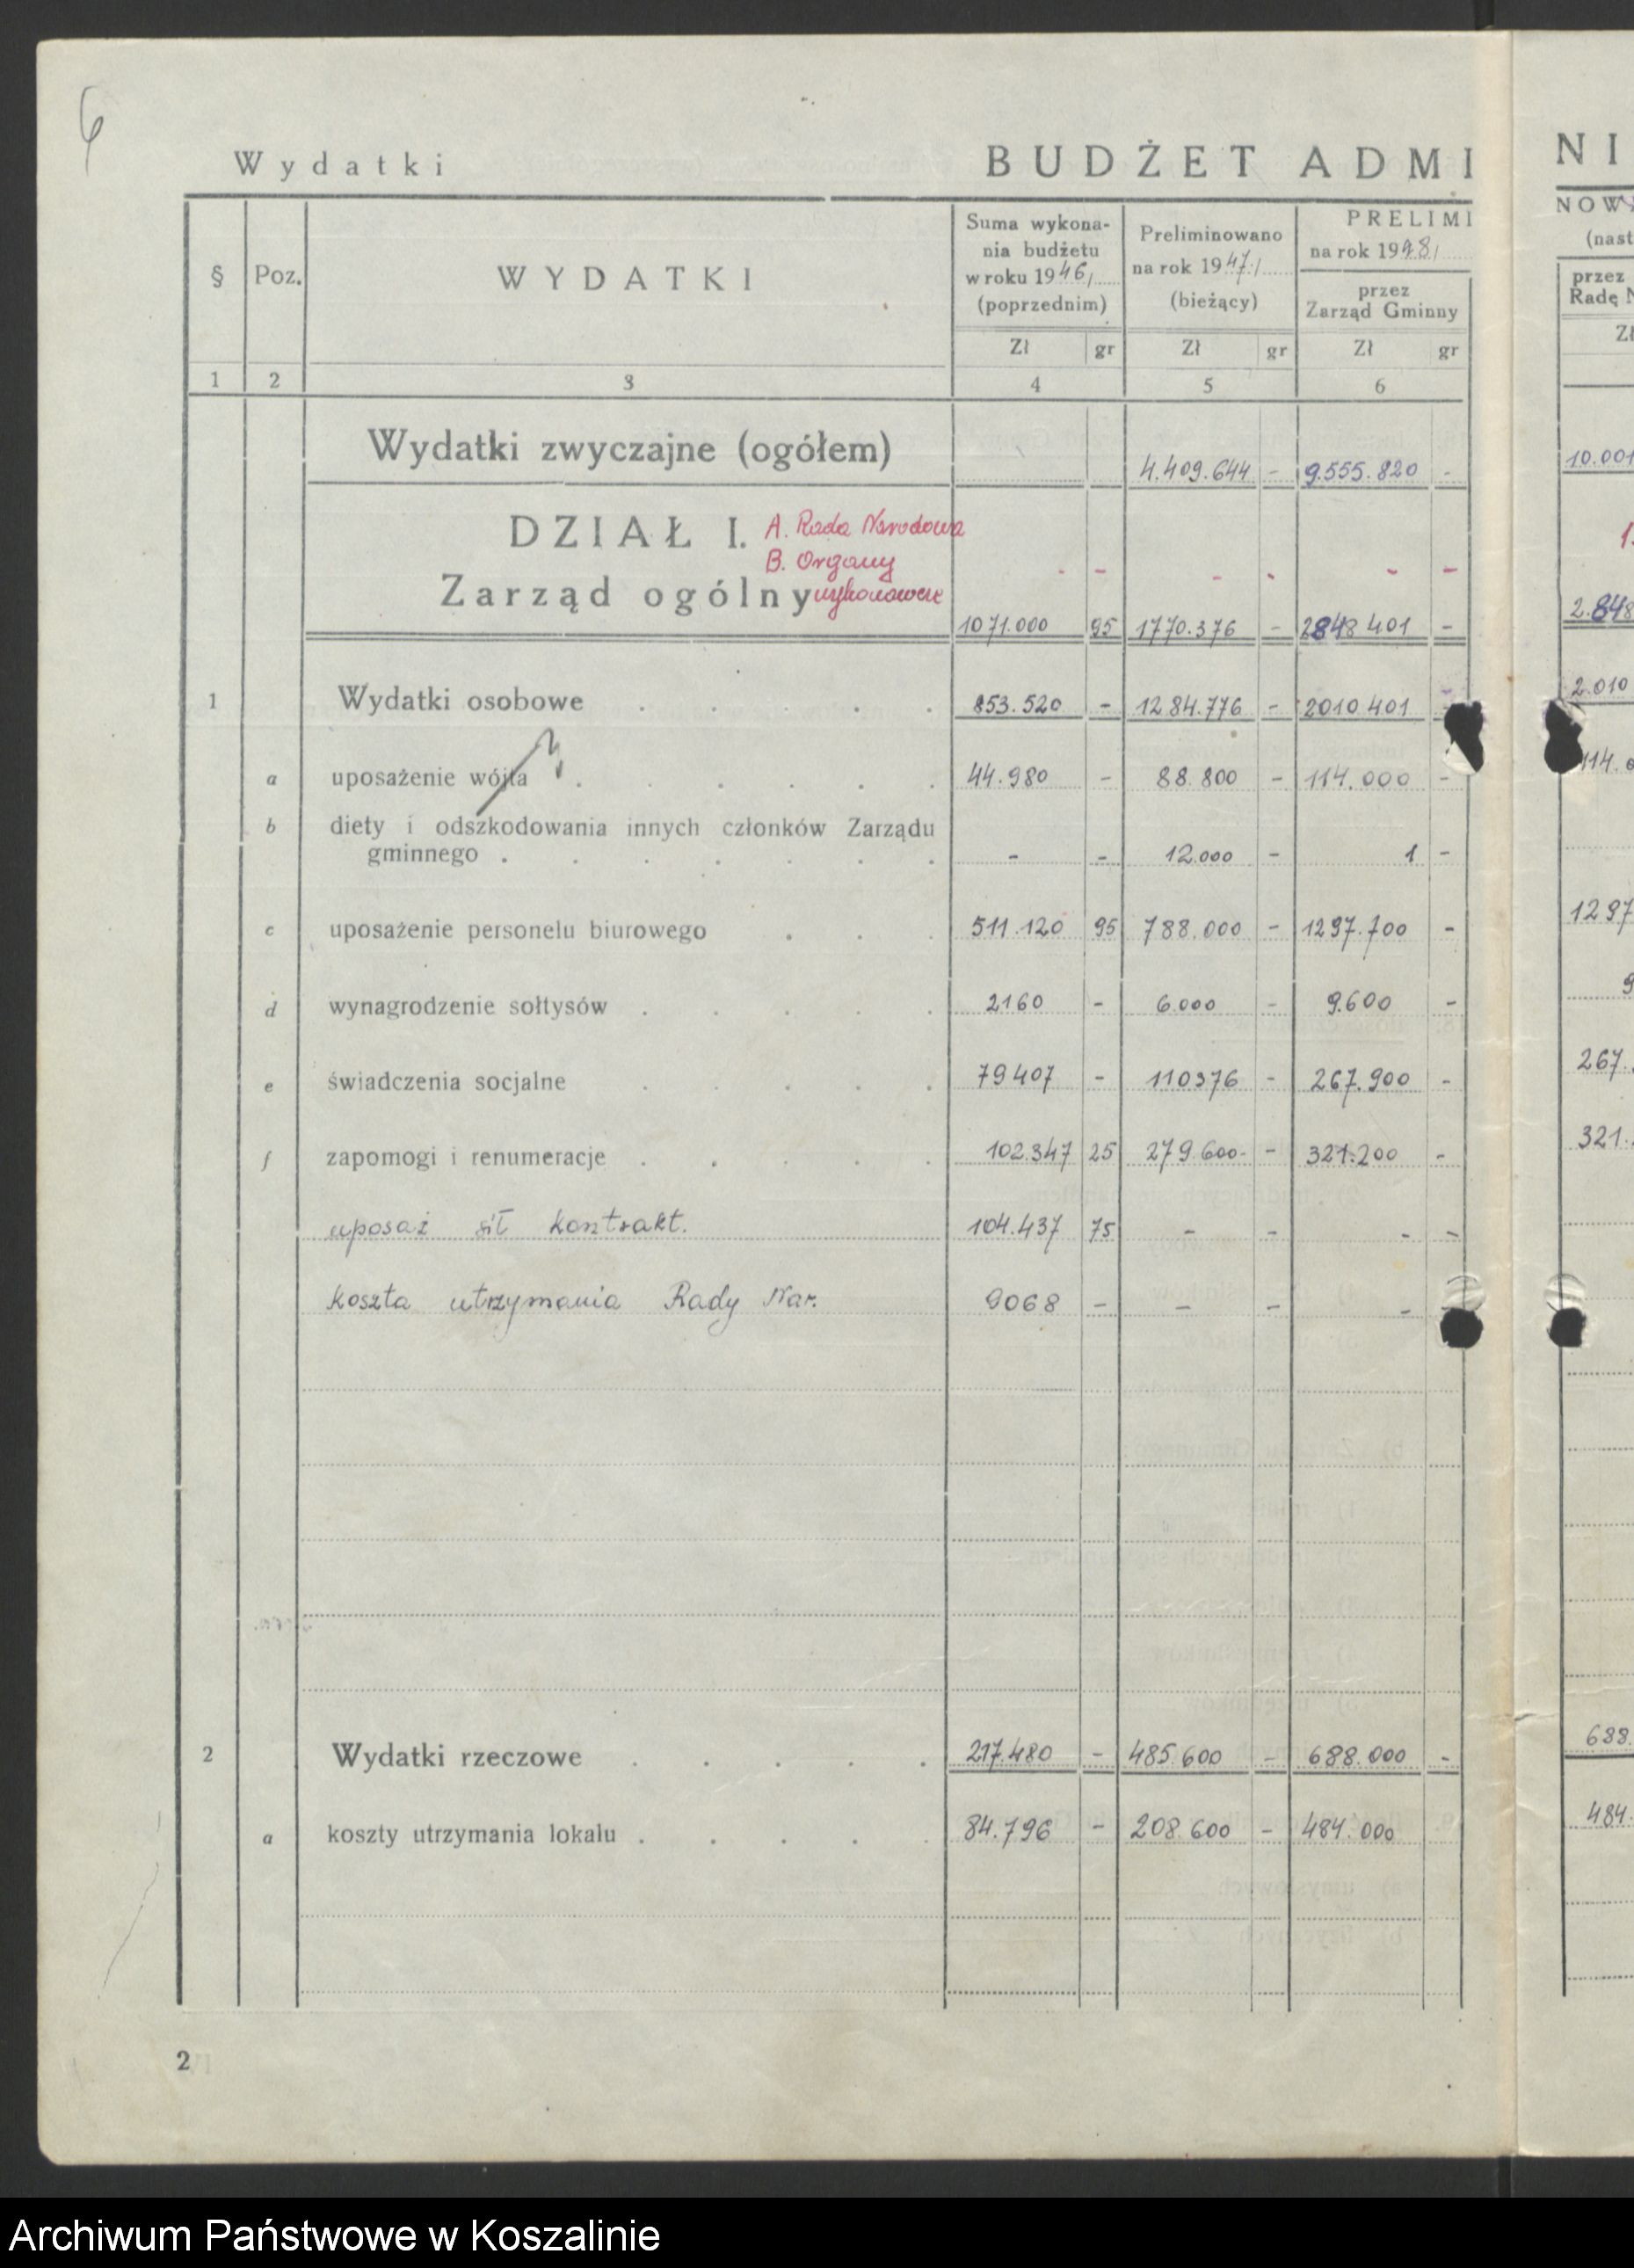 6
Wydatki BUDŻET ADMI NI
§ Poz. WYDATKI Suma wykona- nia budżetu w roku 1946 (poprzednim) Preliminowano na rok 1947 (bieżący) PRELIMI na rok 1948 przez Zarząd Gminny
NOW
(nast
przez
Radę N
Zł gr Zł gr Zł gr Zł
1 2 3 4 5 6
Wydatki zwyczajne (ogółem) 4.409.644 - 9.555.820 - 10.001
DZIAŁ I. A. Rada Narodowa
B. Organy
Zarząd ogólny wykonawcze
1071.000 95 1770.376 - 2848401 - 2.848
1 Wydatki osobowe 853.520 - 1284.776 - 2010401 - 2.010
a uposażenie wójta 44.980 - 88.800 - 114.000 - 114.0
b diety i odszkodowania innych członków Zarządu
gminnego - - 12.000 - 1 -
c uposażenie personelu biurowego 511.120 95 788.000 - 1297.700 - 1297
d wynagrodzenie sołtysów 2160 - 6.000 - 9.600 - 9
e świadczenia socjalne 79407 - 110376 - 267.900 - 267.
f zapomogi i renumeracje 102.347 25 279.600- - 321.200 - 321.
uposaż sił kontrakt. 104.437 75 - - - -
koszta utrzymania Rady Nar. 9068 - - - -
2 Wydatki rzeczowe 217.480 - 485.600 - 688.000 - 688.
a koszty utrzymania lokalu 84.796 - 208.600 - 484.000 484.
2
Archiwum Państwowe w Koszalinie